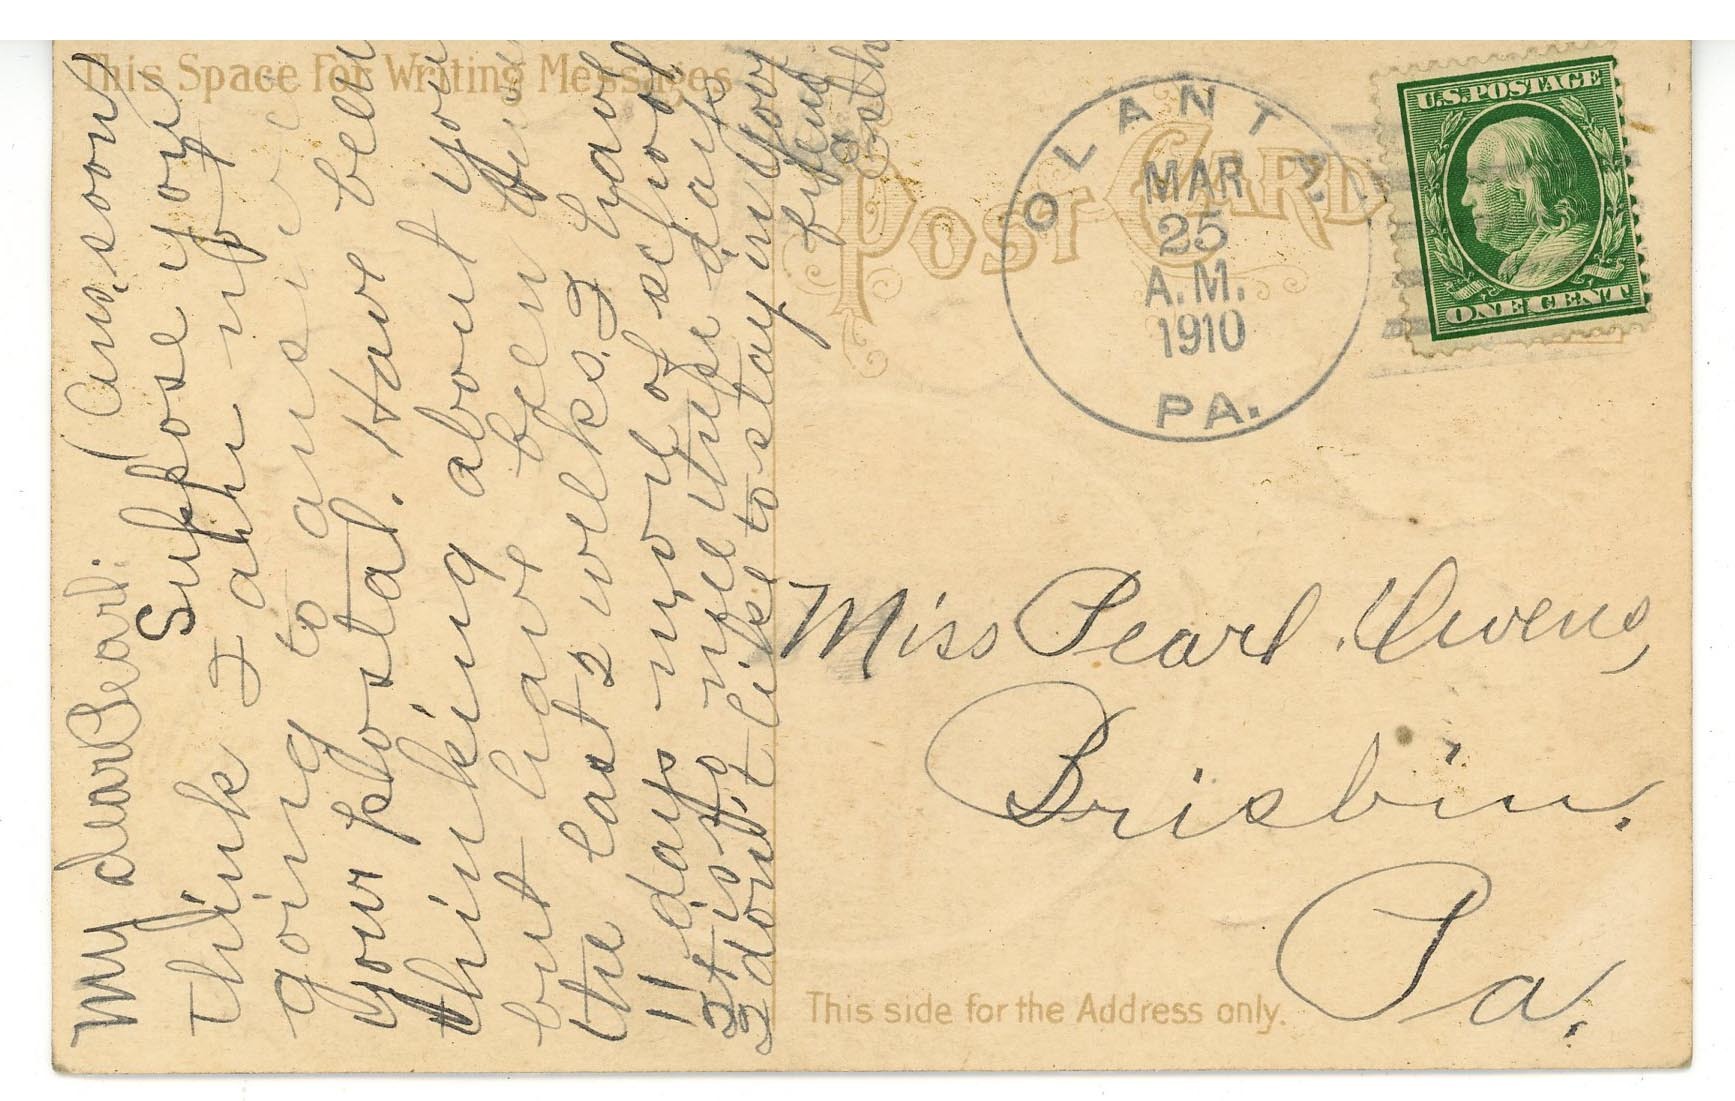 This Space For Writing Messages
My dear Pearl: (Ans, soon)
Suppose you
think I am not
going to answer
your postal. Have been
thinking about you
but have been busy
the last 2 weeks. I have
11 days more of school
It is so nice these days
I dont like to stay in Your
friend
Esth
POST CARD
OLANTA.
MAR
25
A.M.
1910
PA.
U.S. POSTAGE
ONE CENT
Miss Pearl Owens,
Brisbin.
Pa.
This side for the Address only.